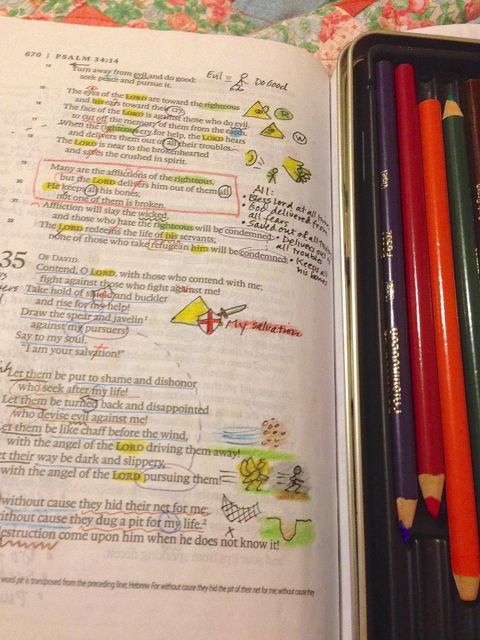 670 | PSALM 34:14
14 Turn away from evil and do good;
seek peace and pursue it.
Evil = Do Good
15 The eyes of the LORD are toward the righteous
and his ears toward their cry.
16 The face of the LORD is against those who do evil,
to cut off the memory of them from the earth.
17 When the righteous cry for help, the LORD hears
and delivers them out of all their troubles.
18 The LORD is near to the brokenhearted
and saves the crushed in spirit.
R
W
19 Many are the afflictions of the righteous,
but the LORD delivers him out of them all.
20 He keeps all his bones;
not one of them is broken.
21 Affliction will slay the wicked,
and those who hate the righteous will be condemned.
22 The LORD redeems the life of his servants;
none of those who take refuge in him will be condemned.
All:
• Bless Lord at all
• God delivered from
all fears
• Saved out of all
• Delivers out of
all troubles
• Keeps all
his bones
35 OF DAVID.
Contend, O LORD, with those who contend with me;
fight against those who fight against me!
Take hold of shield and buckler
and rise for my help!
Draw the spear and javelin
against my pursuers!
Say to my soul,
"I am your salvation!"
My salvation
Let them be put to shame and dishonor
who seek after my life!
Let them be turned back and disappointed
who devise evil against me!
Let them be like chaff before the wind,
with the angel of the LORD driving them away!
Let their way be dark and slippery,
with the angel of the LORD pursuing them!
without cause they hid their net for me;
without cause they dug a pit for my life.2
destruction come upon him when he does not know it!
word pit is transposed from the preceding line; Hebrew For without cause they hid the pit of their net for me; without cause they
PRISMACOLOR